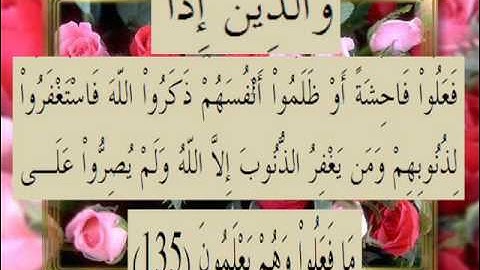 وَالَّذِينَ إِذَا
فَعَلُواْ فَاحِشَةً أَوْ ظَلَمُواْ أَنْفُسَهُمْ ذَكَرُواْ اللّهَ فَاسْتَغْفَرُواْ
لِذُنُوبِهِمْ وَمَن يَغْفِرُ الذُّنُوبَ إِلاَّ اللّهُ وَلَمْ يُصِرُّواْ عَلَـــى
مَا فَعَلُواْ وَهُمْ يَعْلَمُونَ (135)